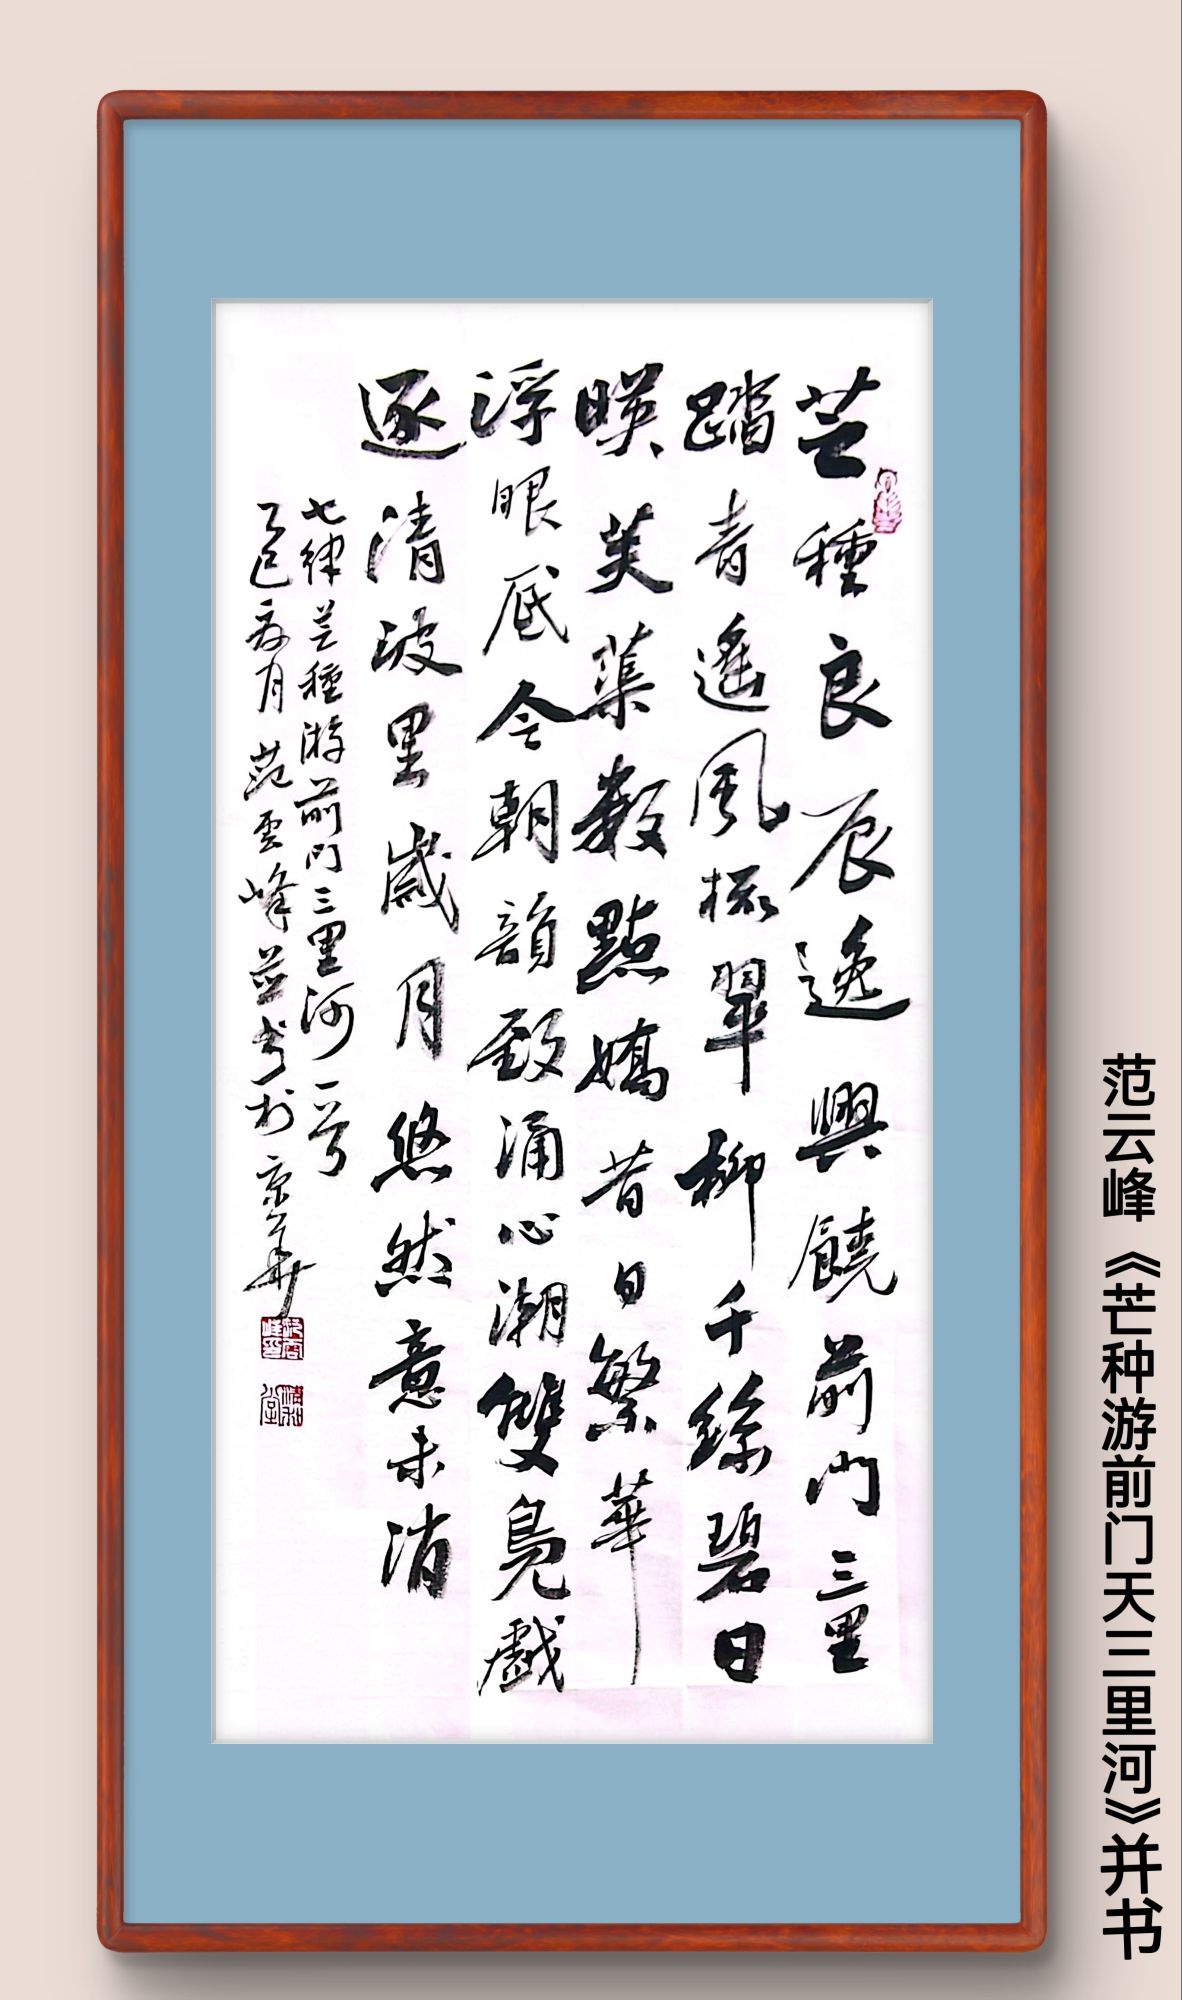 芒種良辰逸興饒前門三里
踏青遙風梳翠柳千絲碧日
暎芙蕖數點嬌昔日繁華
浮眼底今朝韻致涌心潮雙鳧戲
逐清波里歲月悠然意未消
七律芒種游前門三里河一首
乙巳月范雲峰並书於京華
范云峰《芒种游前门天三里河》并书